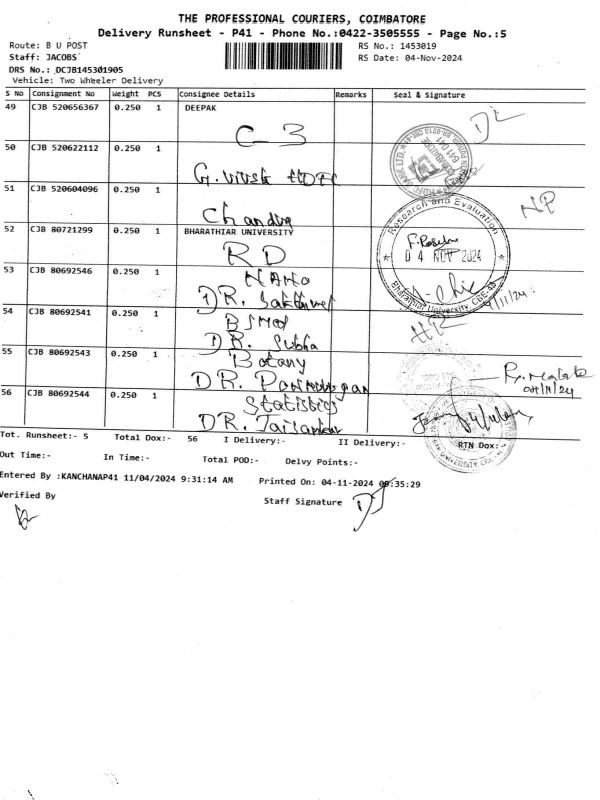 THE PROFESSIONAL COURIERS, COIMBATORE
Delivery Runsheet - P41 - Phone No.:0422-3505555 - Page No.:5
Route: B U POST RS No.: 1453019
Staff: JACOBS RS Date: 04-Nov-2024
DRS No.: DCJB145301905
Vehicle: Two Wheeler Delivery
S No Consignment No Weight PCS Consignee Details Remarks Seal & Signature
49 CJB 520656367 0.250 1 DEEPAK
C 3
DL
50 CJB 520622112 0.250 1
G. HDFC
51 CJB 520604096 0.250 1
Chandra
NR
52 CJB 80721299 0.250 1 BHARATHIAR UNIVERSITY
RD
Research and Evaluation
04 NOV 2024
Bharathiar University, CBE-46
53 CJB 80692546 0.250 1 NANO
DR. Sakthivel
54 CJB 80692541 0.250 1
DR. Subha
55 CJB 80692543 0.250 1 Botany
DR.
56 CJB 80692544 0.250 1 Statistics
DR. Jaisankar
Tot. Runsheet:- 5 Total Dox:- 56 I Delivery:- II Delivery:- RTN Dox:-
Out Time:- In Time:- Total POD:- Delvy Points:-
Entered By :KANCHANAP41 11/04/2024 9:31:14 AM Printed On: 04-11-2024 09:35:29
Verified By Staff Signature